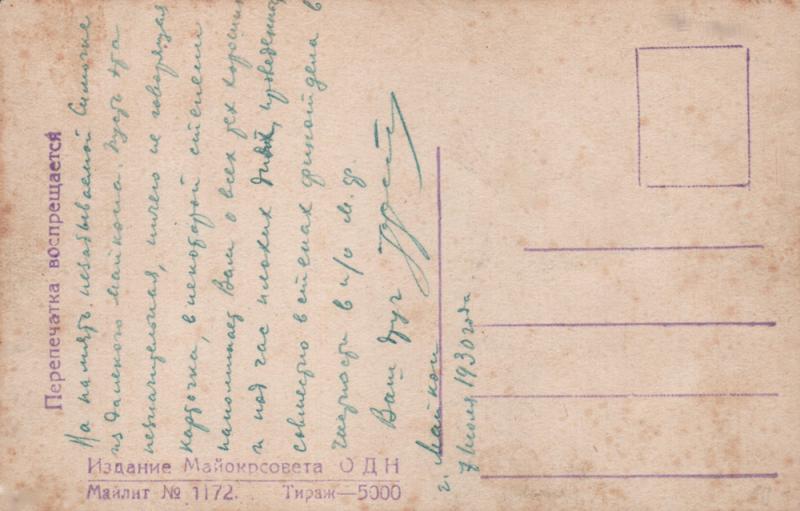 На память незабываемой Симочке
из далекого Майкопа. Пусть эта
незначительная, ничего не говорящая
карточка, в некоторой степени
напоминает Вам о всех тех хороших
и под час плохих днях, проведенных
совместно в стенах финотдела в
частности в н/о М. ф.
Ваш друг
г. Майкоп
7 июля 1930 года.
Перепечатка воспрещается
Издание Майокрсовета ОДН
Майлит № 1172. Тираж—5000